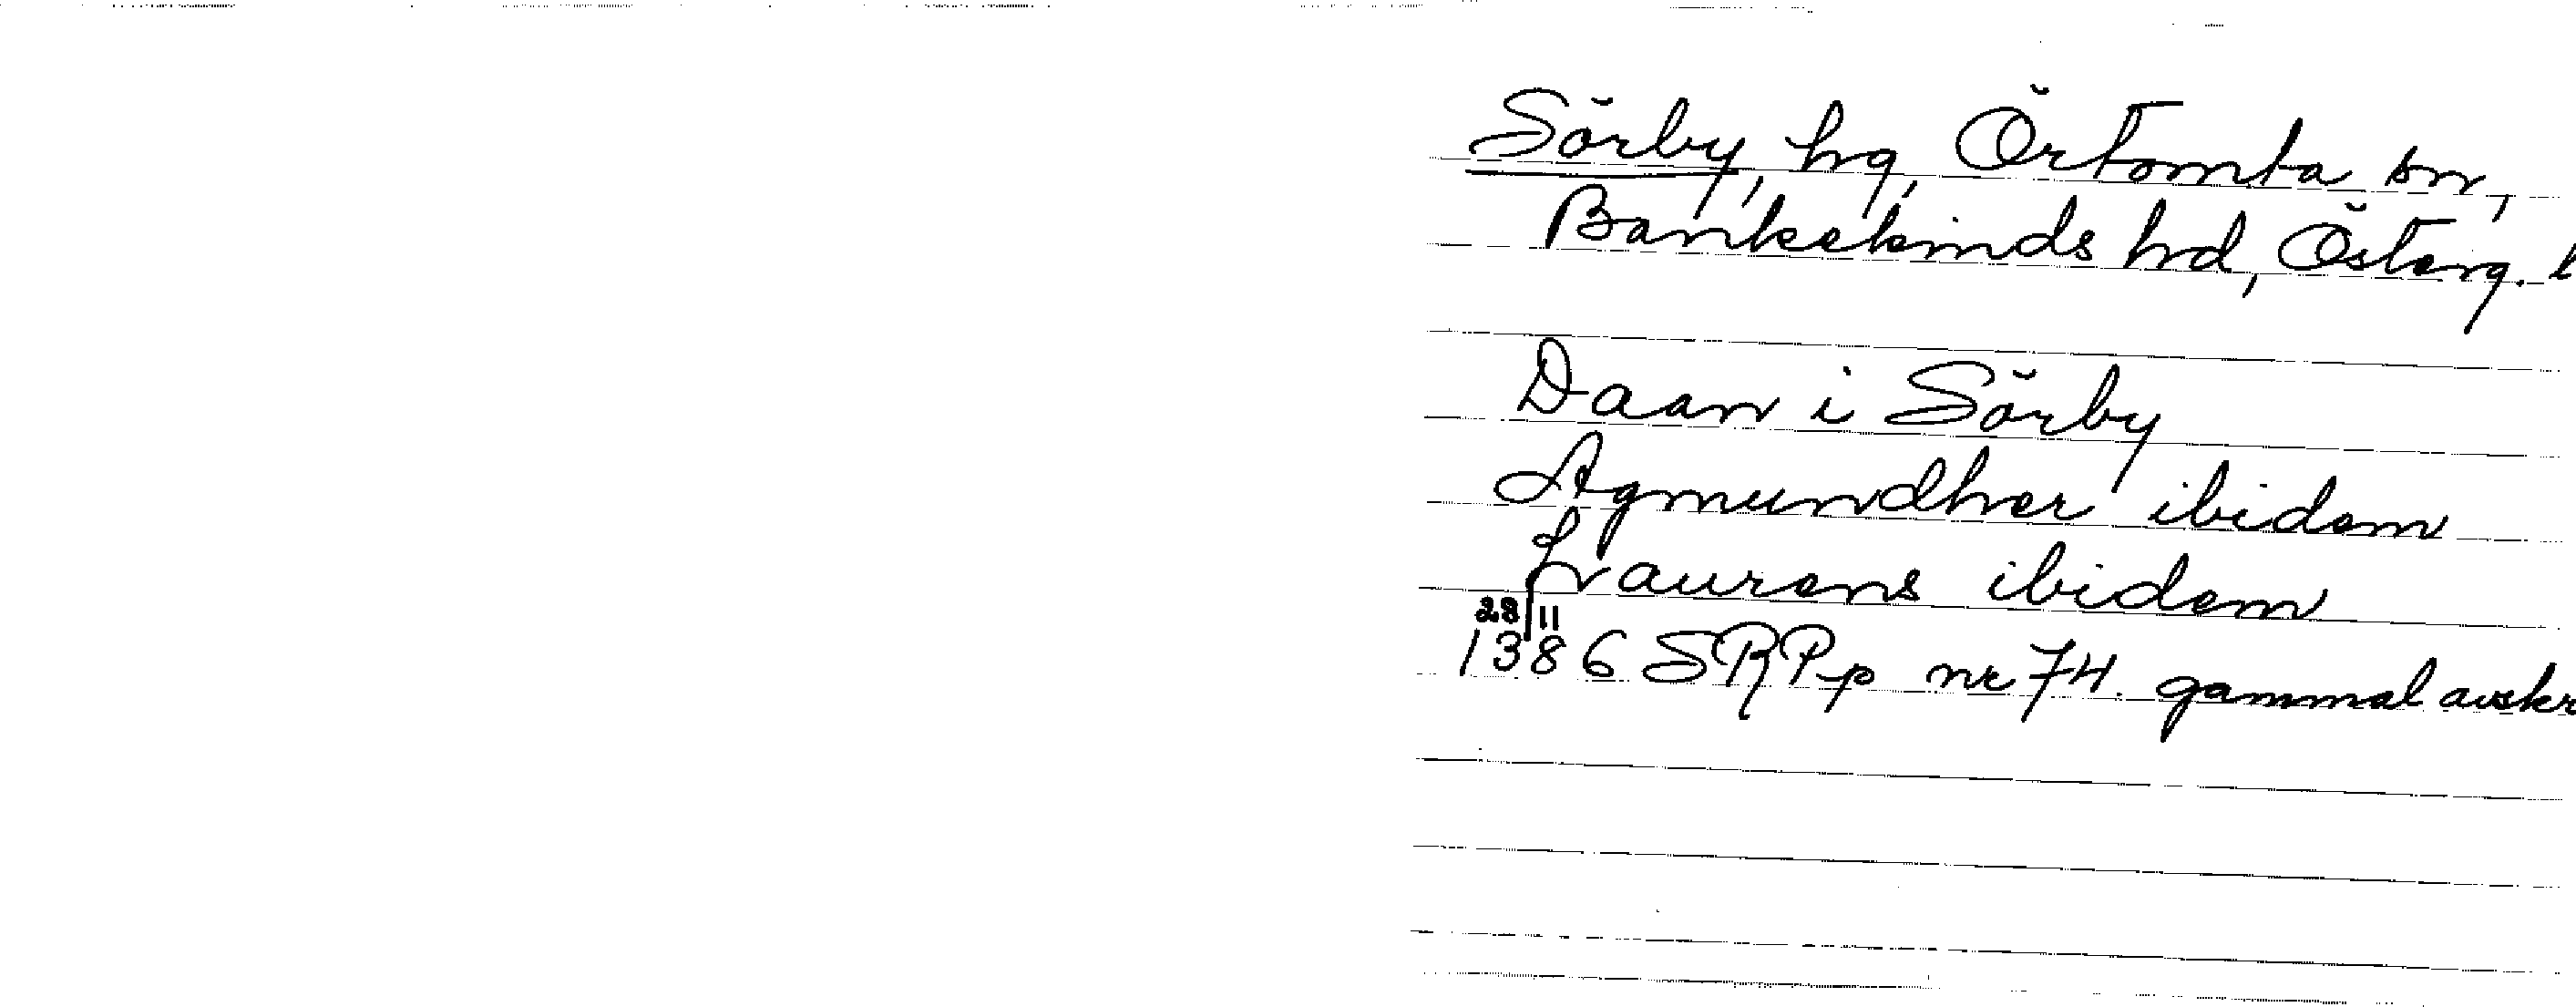 Sörby, hg, Örtomta sn,
Bankekinds hd, Österg. l
Daan i Sörby
Agmundher ibidem
Laurens ibidem
23/11
1386 SRPp nr 74. gammal avskr